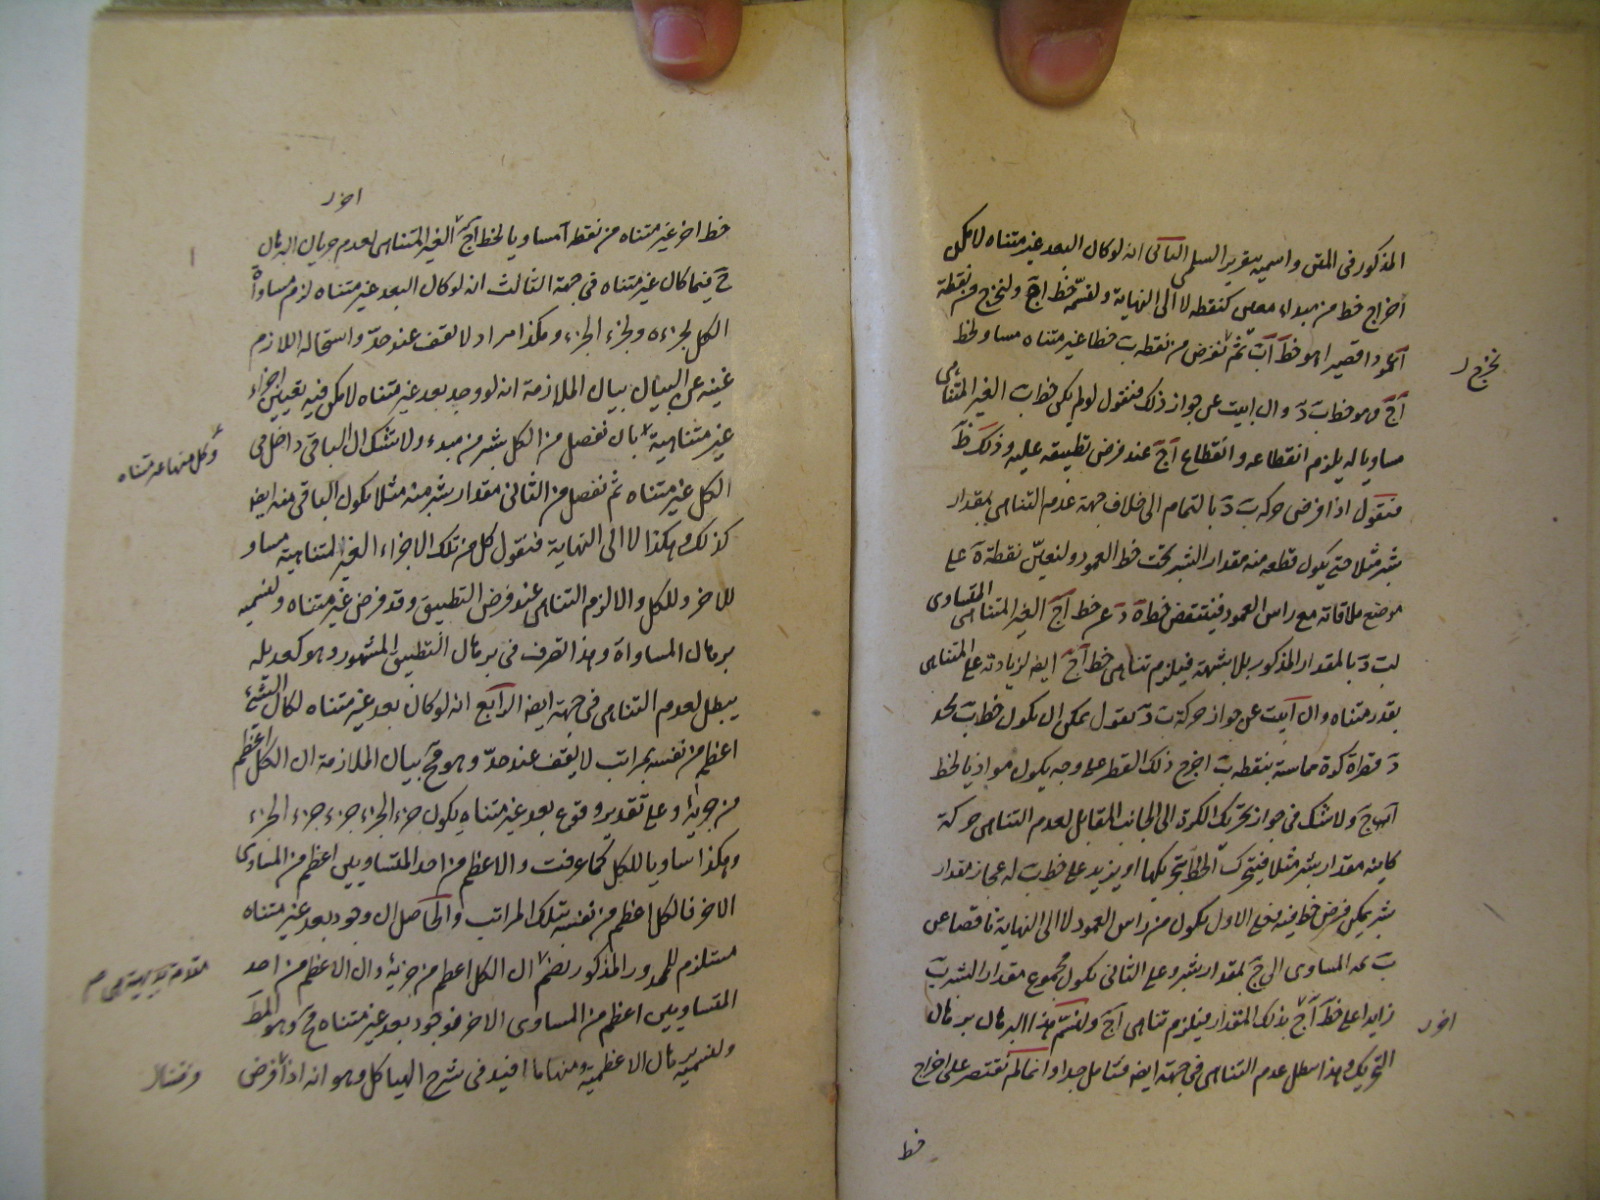 المذكور فى المتن واسميه بتقرير السلمى الثانى انه لو كان البعد غير متناه لامكن
اخراج خط من مبداء معين كنقطه لا الى النهاية ولنسمّه خط اج ولنخرج من نقطة
آ عمودا قصيرا هو خط اب ثم نفرض من نقطه ب خطا غير متناه مساو لخط
نخرج
اج وهو خط ب د وان ابيت عن جواز ذلك فنقول لو لم يكن خط ب الغير المتناهى
مساويا له يلزم انقطاعه وانقطاع اج عند فرض تطبيقه عليه وذلك
فنقول اذا فرض حركه ب د بالتمام الى خلاف جهة عدم التناهى بمقدار
شبر مثلا حتى يكون قطعه منه مقدار الشبر تحت خط العمود ولنعيّن نقطة ه على
موضع ملاقاته مع راس العمود فينتقص خط ه د عن خط اج الغير المتناهى المتساوى
لب د بالمقدار المذكور بلا شبهة فيلزم تناهى خط اج ايضا لزيادته على المتناهى
بقدر متناه وان ابيت عن جواز حركة ب د نقول يمكن ان يكون خط ب
د قطر كرة مماسة بنقطه ب اخرج ذلك القطر على وجه يكون موازيا لخط
اج ولا شك فى جواز تحريك الكرة الى الجانب المقابل لعدم التناهى حركة
كاينه مقدار شبر مثلا فيتحرك الخط بتحريكها او يزيد على خط ب مقدار
شبر يمكن فرض خط فيه فعلى الاول يكون من راس العمود لا الى النهاية ناقصا عن
ب المساوى الى ج بمقدار شبر وعلى الثانى يكون مجموع مقدار الشبر ب
زايدا على خط اج بذلك المقدار فيلزم تناهى اج ولنسمّ هذا البرهان برهان
اخر
التحريك وهذا يبطل عدم التناهى فى جهة ايضا فتامل جدا وانما لم نقتصر على اخراج
خط
اخر
خط اخر غير متناه من نقطه آ مساويا لخط اج الغير المتناهى لعدم جريان البرهان
ح فيما كان غير متناه فى جهة الثالث انه لو كان البعد غير متناه لزم مساواة
الكل لجزءه ولجزء الجزء وهكذا مرارا لا تقف عند حدّ واستحاله اللازم
غنيه عن البيان بيان الملازمة انه لو وجد بعد غير متناه لامكن فيه تعيين اجزاء
غير متناهية بان نفصل من الكل شبر من مبدء ولا شك ان الباقى داخل فى
وكل منها غير متناه
الكل غير متناه ثم نفصل من الثانى مقدار شبر منه مثلا يكون الباقى منه ايضا
كذلك وهكذا لا الى النهاية فنقول كل من تلك الاجزاء الغير المتناهية مساو
للاخر وللكل والا لزم التناهى عند فرض التطبيق وقد فرض غير متناه ولنسميه
برهان المساواة وهذا تصرف فى برهان التطبيق المشهور وهو كعديله
يبطل لعدم التناهى فى جهة ايضا الرابع انه لو كان بعد غير متناه لكان الشئ
اعظم من نفسه بمراتب لا يقف عند حدّ وهو مح بيان الملازمة ان الكل اعظم
من جزئه وعلى تقدير وقوع بعد غير متناه يكون جزء الجزء جزء جزء الجزء
وهكذا مساويا للكل كما عرفت والاعظم من احد المتساويين اعظم من المساوى
الاخر فالكل اعظم من نفسه بتلك المراتب والحاصل ان وجود بعد غير متناه
مستلزم للمحذور المذكور بضم ان الكل اعظم من جزئه وان الاعظم من احد
مقدمة بديهية هى
المتساويين اعظم من المساوى الاخر فوجود بعد غير متناه مح وهو المط
ولنسميه برهان الاعظمية ومنها ما افيد فى شرح الهياكل وهو انه اذا فرض